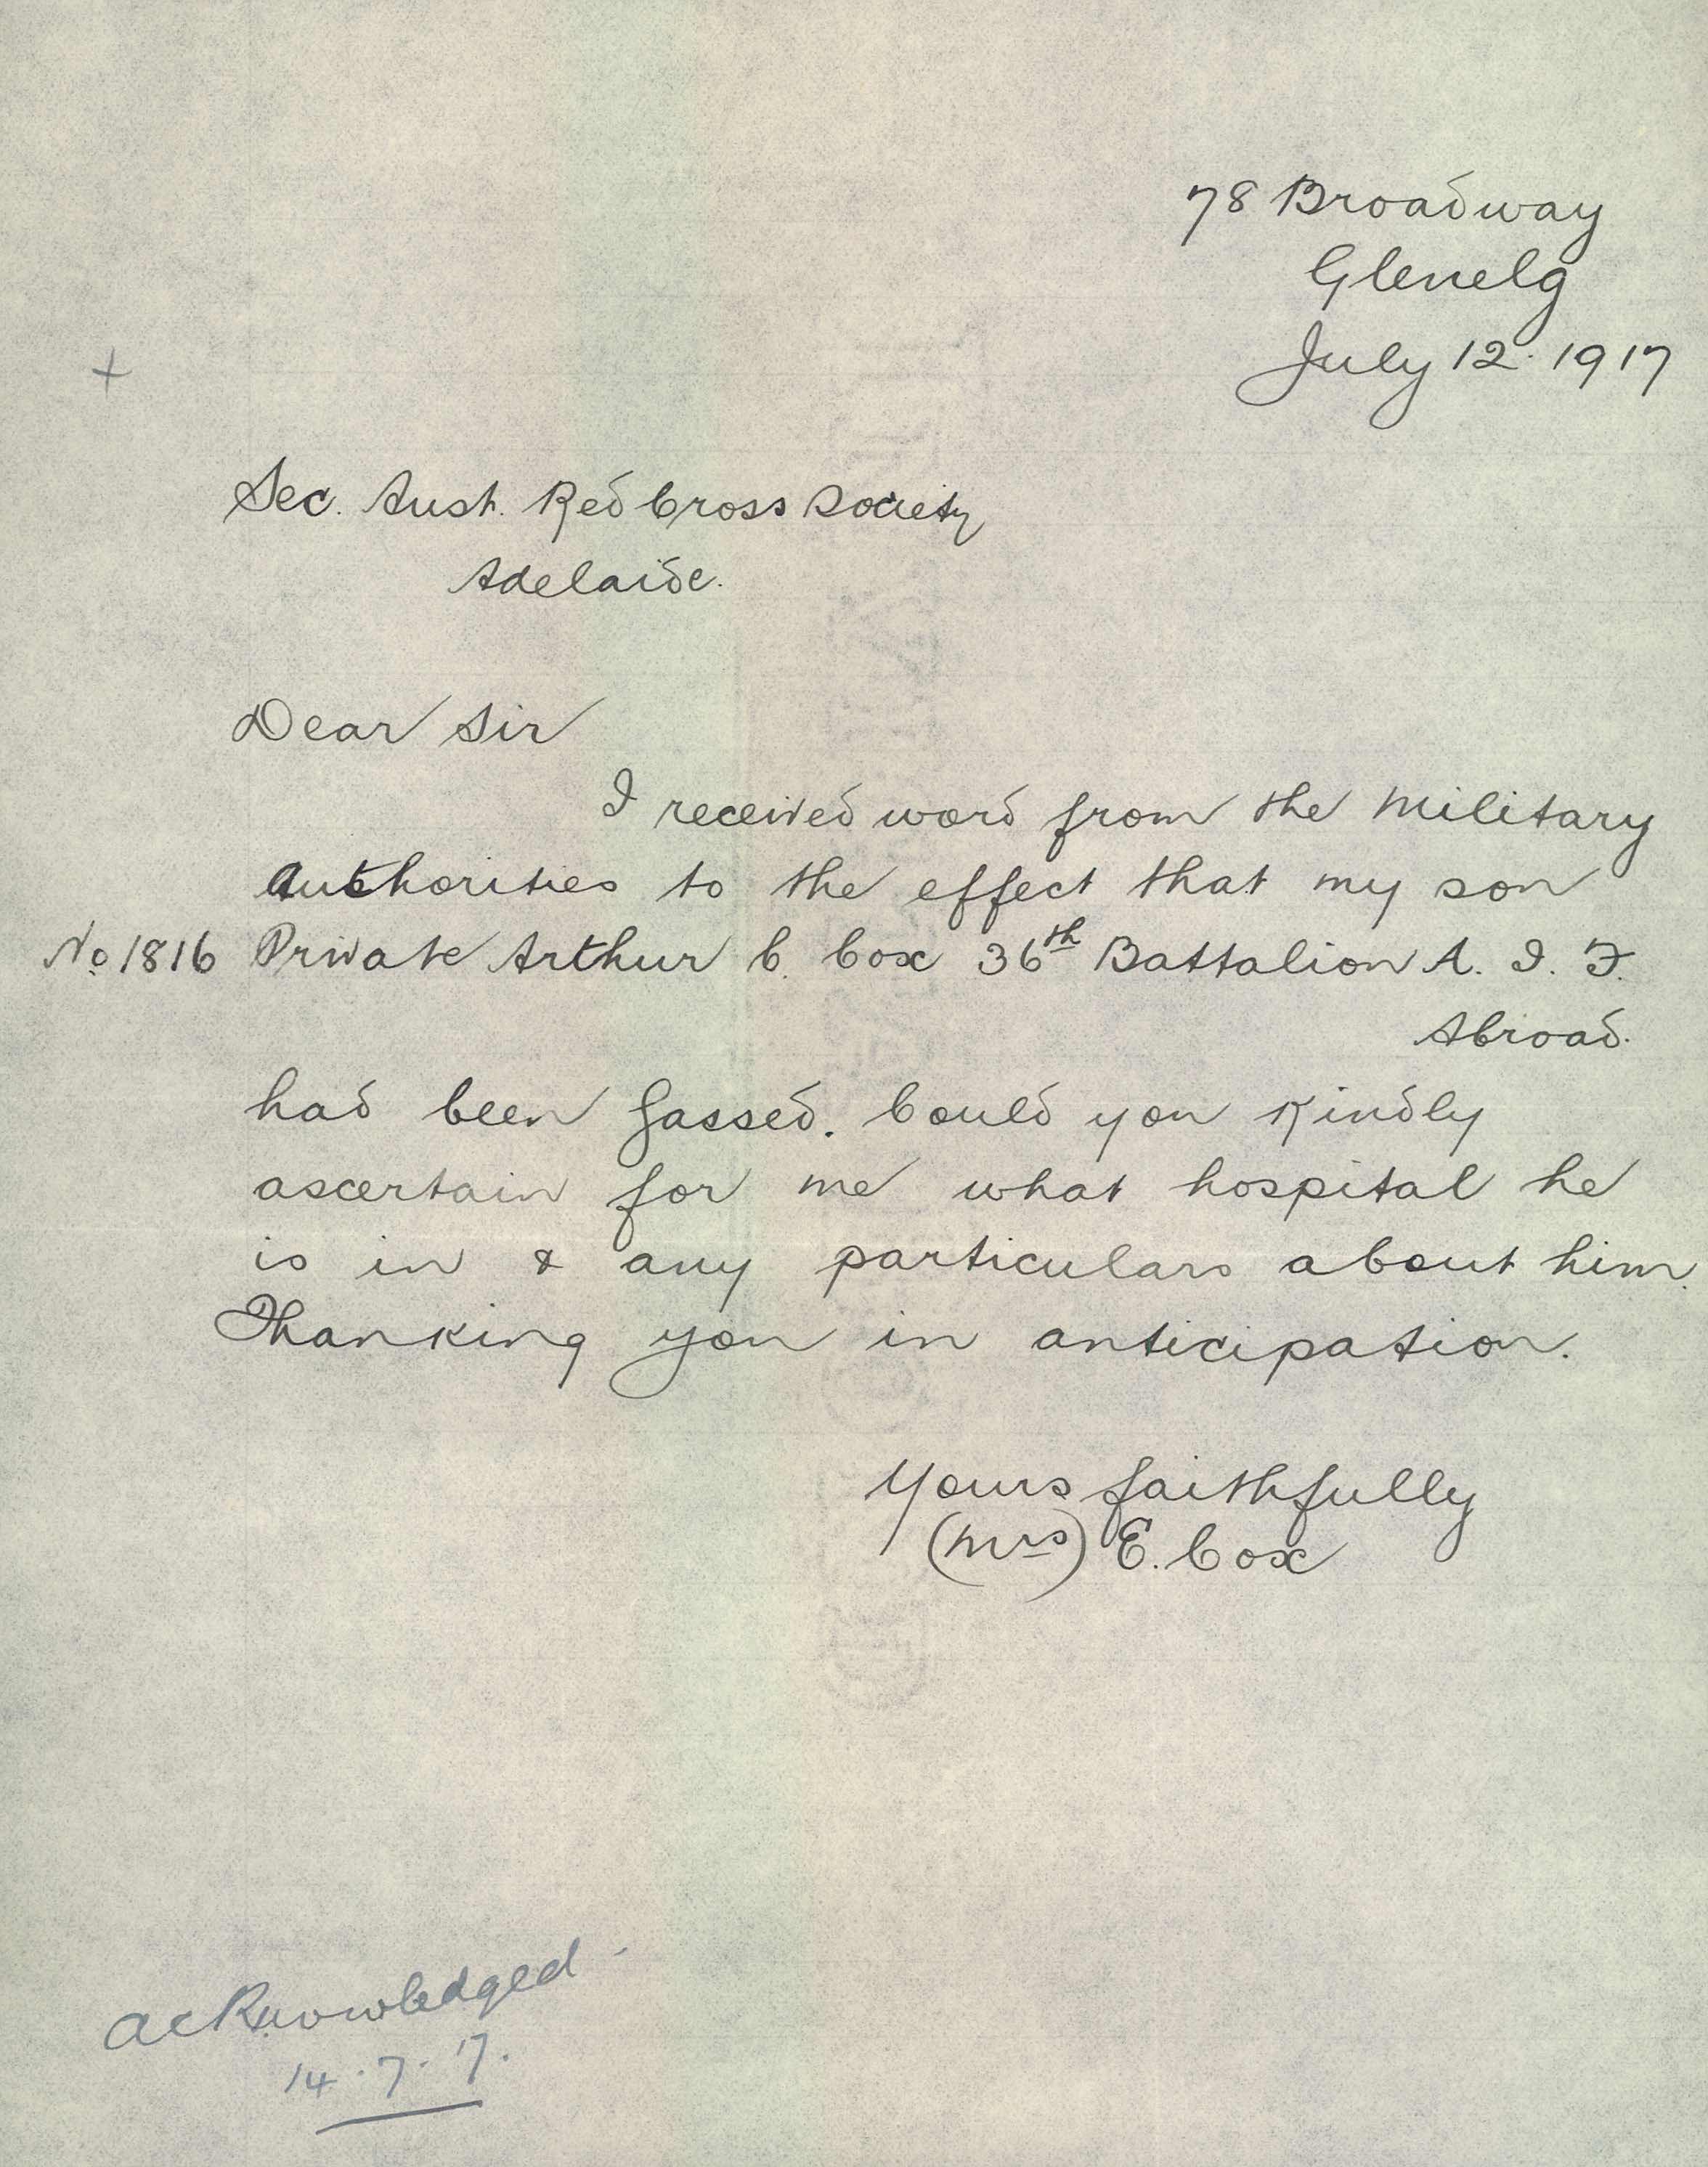 78 Broadway
Glenelg
July 12. 1917
+
Sec. Aust. Red Cross Society
Adelaide.
Dear Sir
I received word from the Military
Authorities to the effect that my son
No 1816 Private Arthur C. Cox 36th Battalion A. I. F.
Abroad.
had been gassed. Could you kindly
ascertain for me what hospital he
is in & any particulars about him.
Thanking you in anticipation.
Yours faithfully
(Mrs) E. Cox
Acknowledged -
14.7.17.